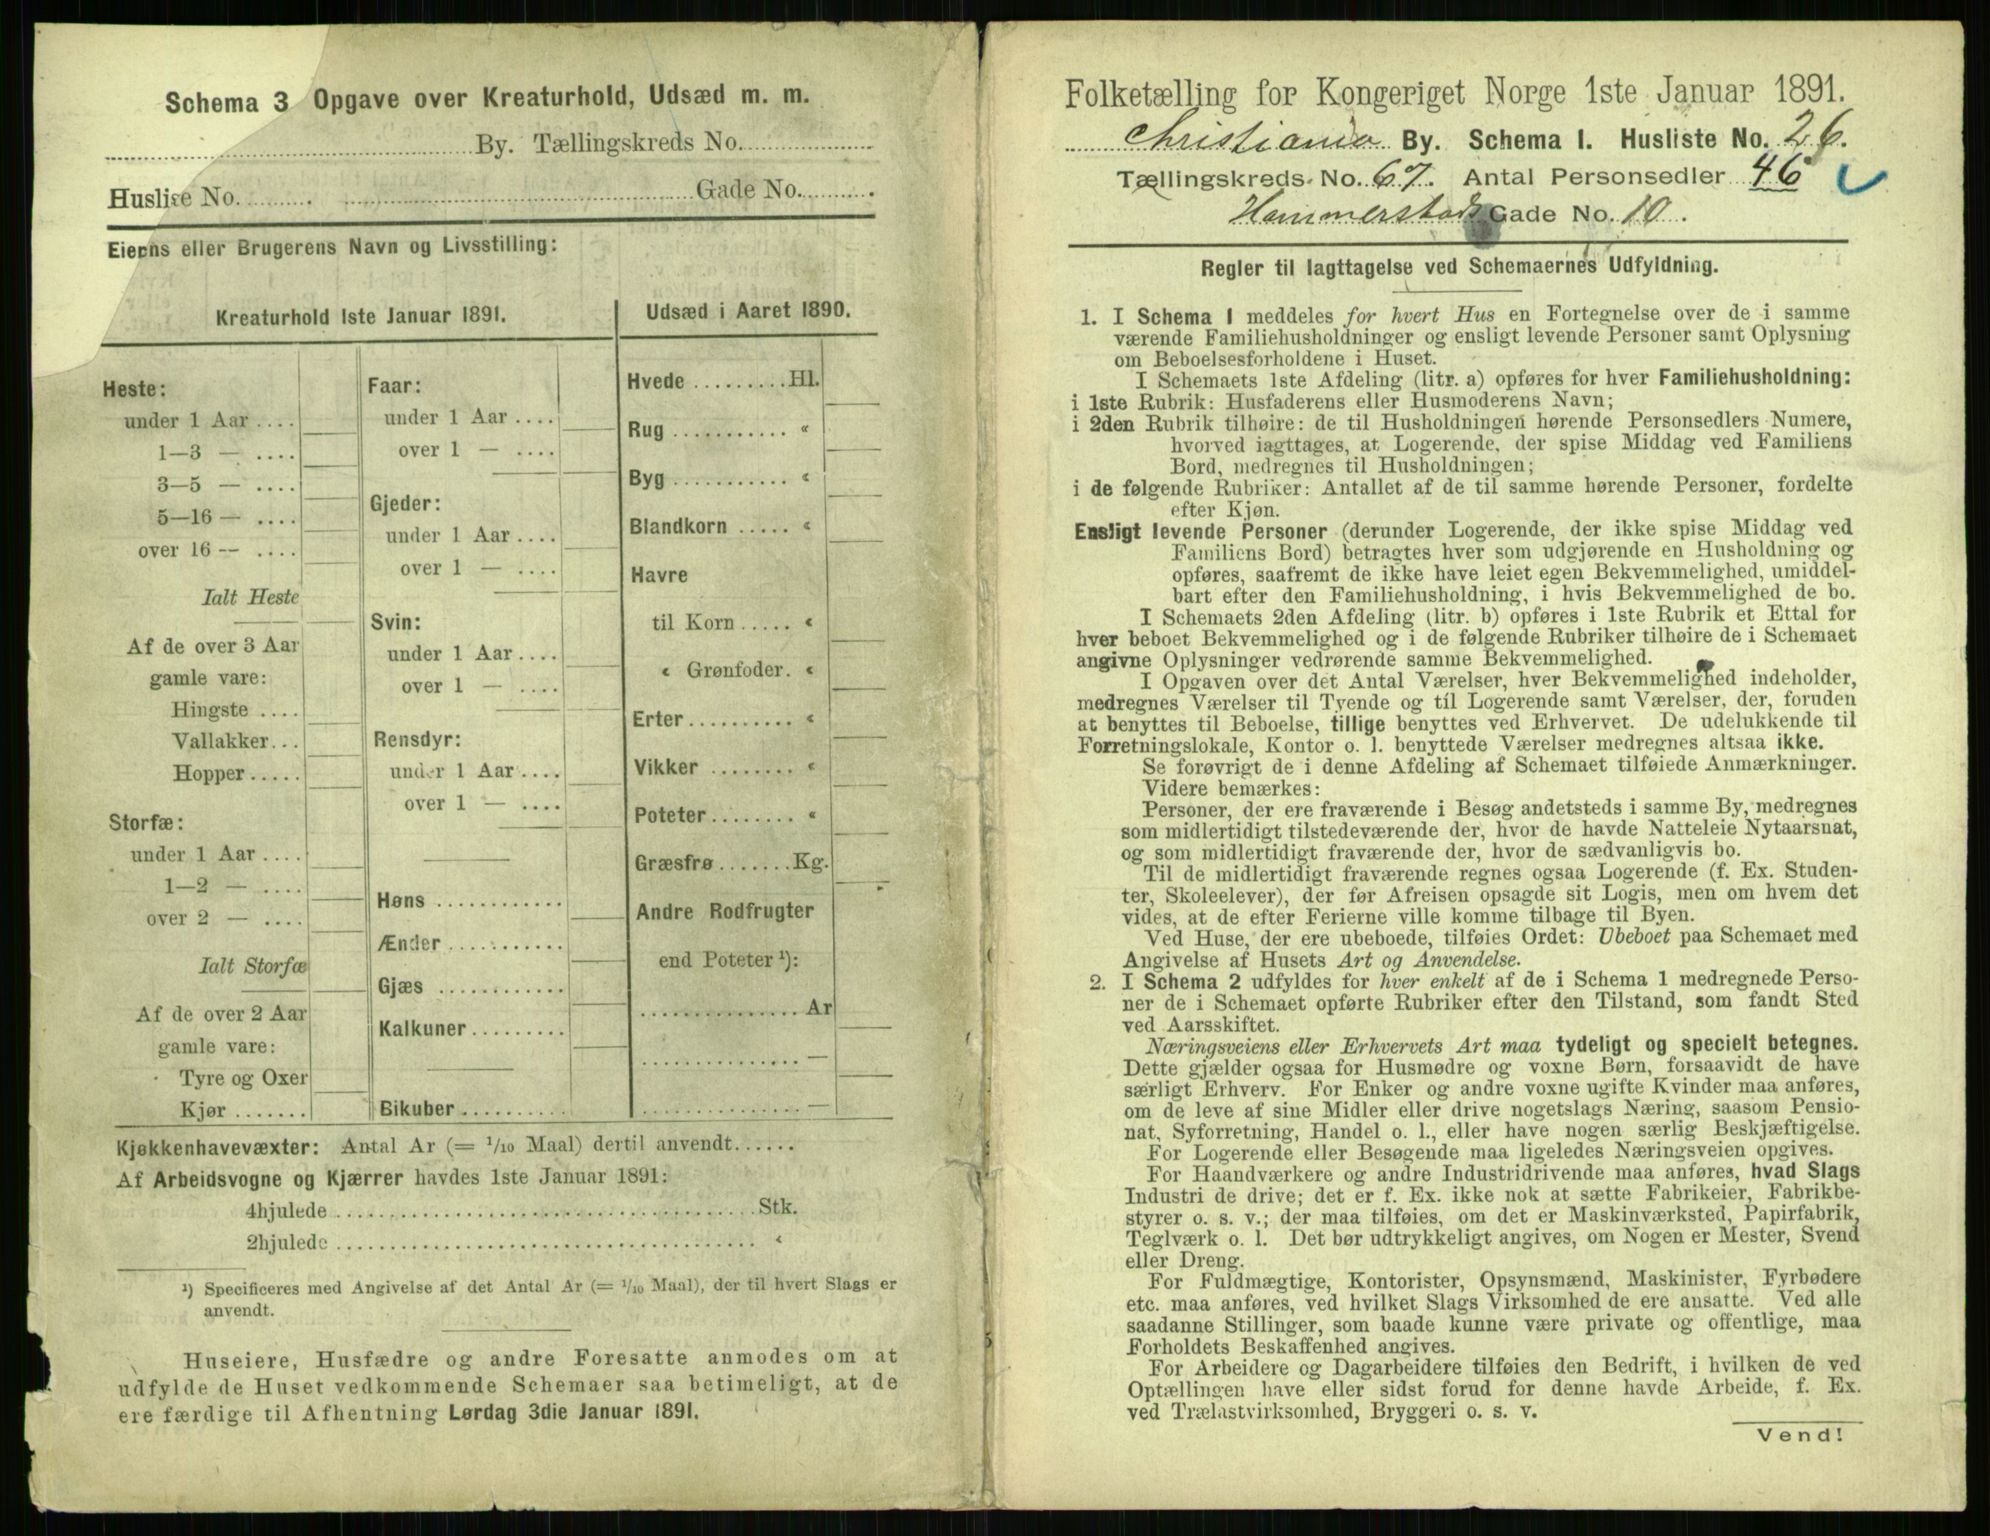 Schema 3 Opgave over Kreaturhold, Udsæd m. m.
By. Tællingskreds No.
Huslise No. Gade No.
Eierns eller Brugerens Navn og Livsstilling:
Kreaturhold 1ste Januar 1891.
Heste:
under 1 Aar ....
1—3 — ....
3—5 — ....
5—16 — ....
over 16 — ....
Ialt Heste
Af de over 3 Aar
gamle vare:
Hingste ....
Vallakker...
Hopper.....
Storfæ:
under 1 Aar ....
1—2 — ....
over 2 — ....
Ialt Storfæ
Af de over 2 Aar
gamle vare:
Tyre og Oxer
Kjør .......
Faar:
under 1 Aar ....
over 1 — ....
Gjeder:
under 1 Aar ....
over 1 — ....
Svin:
under 1 Aar ....
over 1 — ....
Rensdyr:
under 1 Aar ....
over 1 — ....
Høns ............
Ænder ...........
Gjæs ............
Kalkuner .........
Bikuber ..........
Udsæd i Aaret 1890.
Hvede .........Hl.
Rug ........... «
Byg ........... «
Blandkorn ..... «
Havre
til Korn ..... «
« Grønfoder. «
Erter .......... «
Vikker ........ «
Poteter ........ «
Græsfrø .......Kg.
Andre Rodfrugter
end Poteter ¹):
............... Ar
............... —
............... —
Kjøkkenhavevæxter: Antal Ar (= 1/10 Maal) dertil anvendt......
Af Arbeidsvogne og Kjærrer havdes 1ste Januar 1891:
4hjulede ...................................... Stk.
2hjulede ...................................... «
¹) Specificeres med Angivelse af det Antal Ar (= 1/10 Maal), der til hvert Slags er
anvendt.
Huseiere, Husfædre og andre Foresatte anmodes om at
udfylde de Huset vedkommende Schemaer saa betimeligt, at de
ere færdige til Afhentning Lørdag 3die Januar 1891.
Folketælling for Kongeriget Norge 1ste Januar 1891.
Christiania By. Schema I. Husliste No. 26.
Tællingskreds No. 67. Antal Personsedler 46
Hammerstads Gade No. 10.
Regler til Iagttagelse ved Schemaernes Udfyldning.
1. I Schema 1 meddeles for hvert Hus en Fortegnelse over de i samme
værende Familiehusholdninger og ensligt levende Personer samt Oplysning
om Beboelsesforholdene i Huset.
I Schemaets 1ste Afdeling (litr. a) opføres for hver Familiehusholdning:
i 1ste Rubrik: Husfaderens eller Husmoderens Navn;
i 2den Rubrik tilhøire: de til Husholdningen hørende Personsedlers Numere,
hvorved iagttages, at Logerende, der spise Middag ved Familiens
Bord, medregnes til Husholdningen;
i de følgende Rubriker: Antallet af de til samme hørende Personer, fordelte
efter Kjøn.
Ensligt levende Personer (derunder Logerende, der ikke spise Middag ved
Familiens Bord) betragtes hver som udgjørende en Husholdning og
opføres, saafremt de ikke have leiet egen Bekvemmelighed, umiddel-
bart efter den Familiehusholdning, i hvis Bekvemmelighed de bo.
I Schemaets 2den Afdeling (litr. b) opføres i 1ste Rubrik et Ettal for
hver beboet Bekvemmelighed og i de følgende Rubriker tilhøire de i Schemaet
angivne Oplysninger vedrørende samme Bekvemmelighed.
I Opgaven over det Antal Værelser, hver Bekvemmelighed indeholder,
medregnes Værelser til Tyende og til Logerende samt Værelser, der, foruden
at benyttes til Beboelse, tillige benyttes ved Erhvervet. De udelukkende til
Forretningslokale, Kontor o. l. benyttede Værelser medregnes altsaa ikke.
Se forøvrigt de i denne Afdeling af Schemaet tilføiede Anmærkninger.
Videre bemærkes:
Personer, der ere fraværende i Besøg andetsteds i samme By, medregnes
som midlertidigt tilstedeværende der, hvor de havde Natteleie Nytaarsnat,
og som midlertidigt fraværende der, hvor de sædvanligvis bo.
Til de midlertidigt fraværende regnes ogsaa Logerende (f. Ex. Studen-
ter, Skoleelever), der før Afreisen opsagde sit Logis, men om hvem det
vides, at de efter Ferierne ville komme tilbage til Byen.
Ved Huse, der ere ubeboede, tilføies Ordet: Ubeboet paa Schemaet med
Angivelse af Husets Art og Anvendelse.
2. I Schema 2 udfyldes for hver enkelt af de i Schema 1 medregnede Perso-
ner de i Schemaet opførte Rubriker efter den Tilstand, som fandt Sted
ved Aarsskiftet.
Næringsveiens eller Erhvervets Art maa tydeligt og specielt betegnes.
Dette gjælder ogsaa for Husmødre og voxne Børn, forsaavidt de have
særligt Erhverv. For Enker og andre voxne ugifte Kvinder maa anføres,
om de leve af sine Midler eller drive nogetslags Næring, saasom Pensio-
nat, Syforretning, Handel o. l., eller have nogen særlig Beskjæftigelse.
For Logerende eller Besøgende maa ligeledes Næringsveien opgives.
For Haandværkere og andre Industridrivende maa anføres, hvad Slags
Industri de drive; det er f. Ex. ikke nok at sætte Fabrikeier, Fabrikbe-
styrer o. s. v.; der maa tilføies, om det er Maskinværksted, Papirfabrik,
Teglværk o. l. Det bør udtrykkeligt angives, om Nogen er Mester, Svend
eller Dreng.
For Fuldmægtige, Kontorister, Opsynsmænd, Maskinister, Fyrbødere
etc. maa anføres, ved hvilket Slags Virksomhed de ere ansatte. Ved alle
saadanne Stillinger, som baade kunne være private og offentlige, maa
Forholdets Beskaffenhed angives.
For Arbeidere og Dagarbeidere tilføies den Bedrift, i hvilken de ved
Optællingen have eller sidst forud for denne havde Arbeide, f. Ex.
ved Trælastvirksomhed, Bryggeri o. s. v.
Vend!